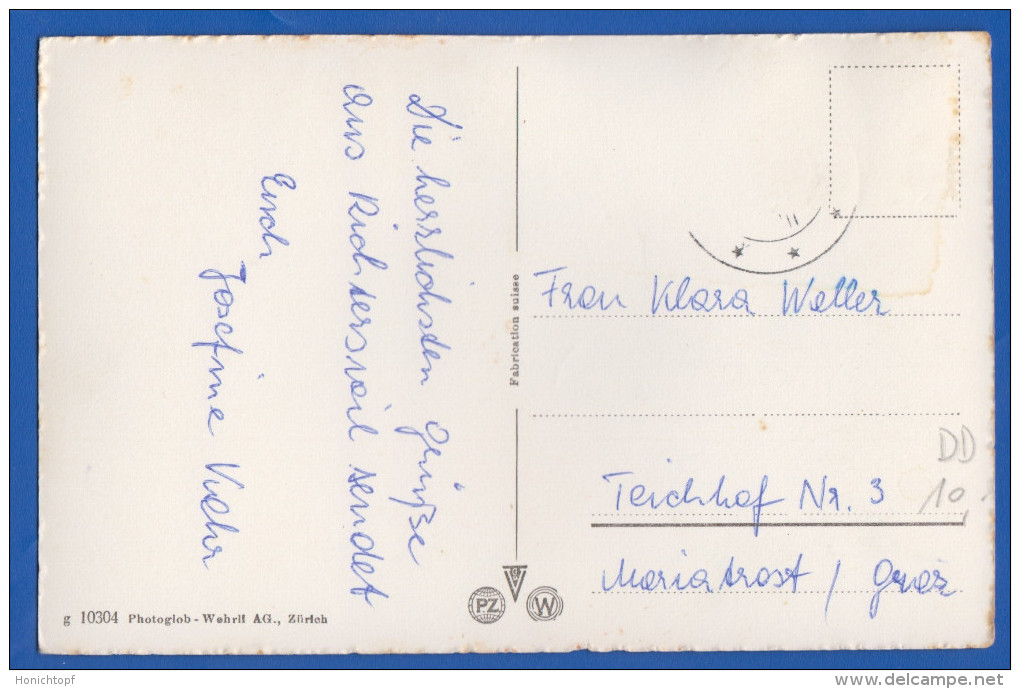 Die herzlichsten Grüße
aus Richterswil sendet
Euch
Josefine
Fabrication suisse
Frau Klara Weller
Teichhof Nr. 3
Mariatrost / Graz
DD
10,-
PZ
W
g 10304 Photoglob - Wehrli AG., Zürich
Honichtopf
www.delcampe.net